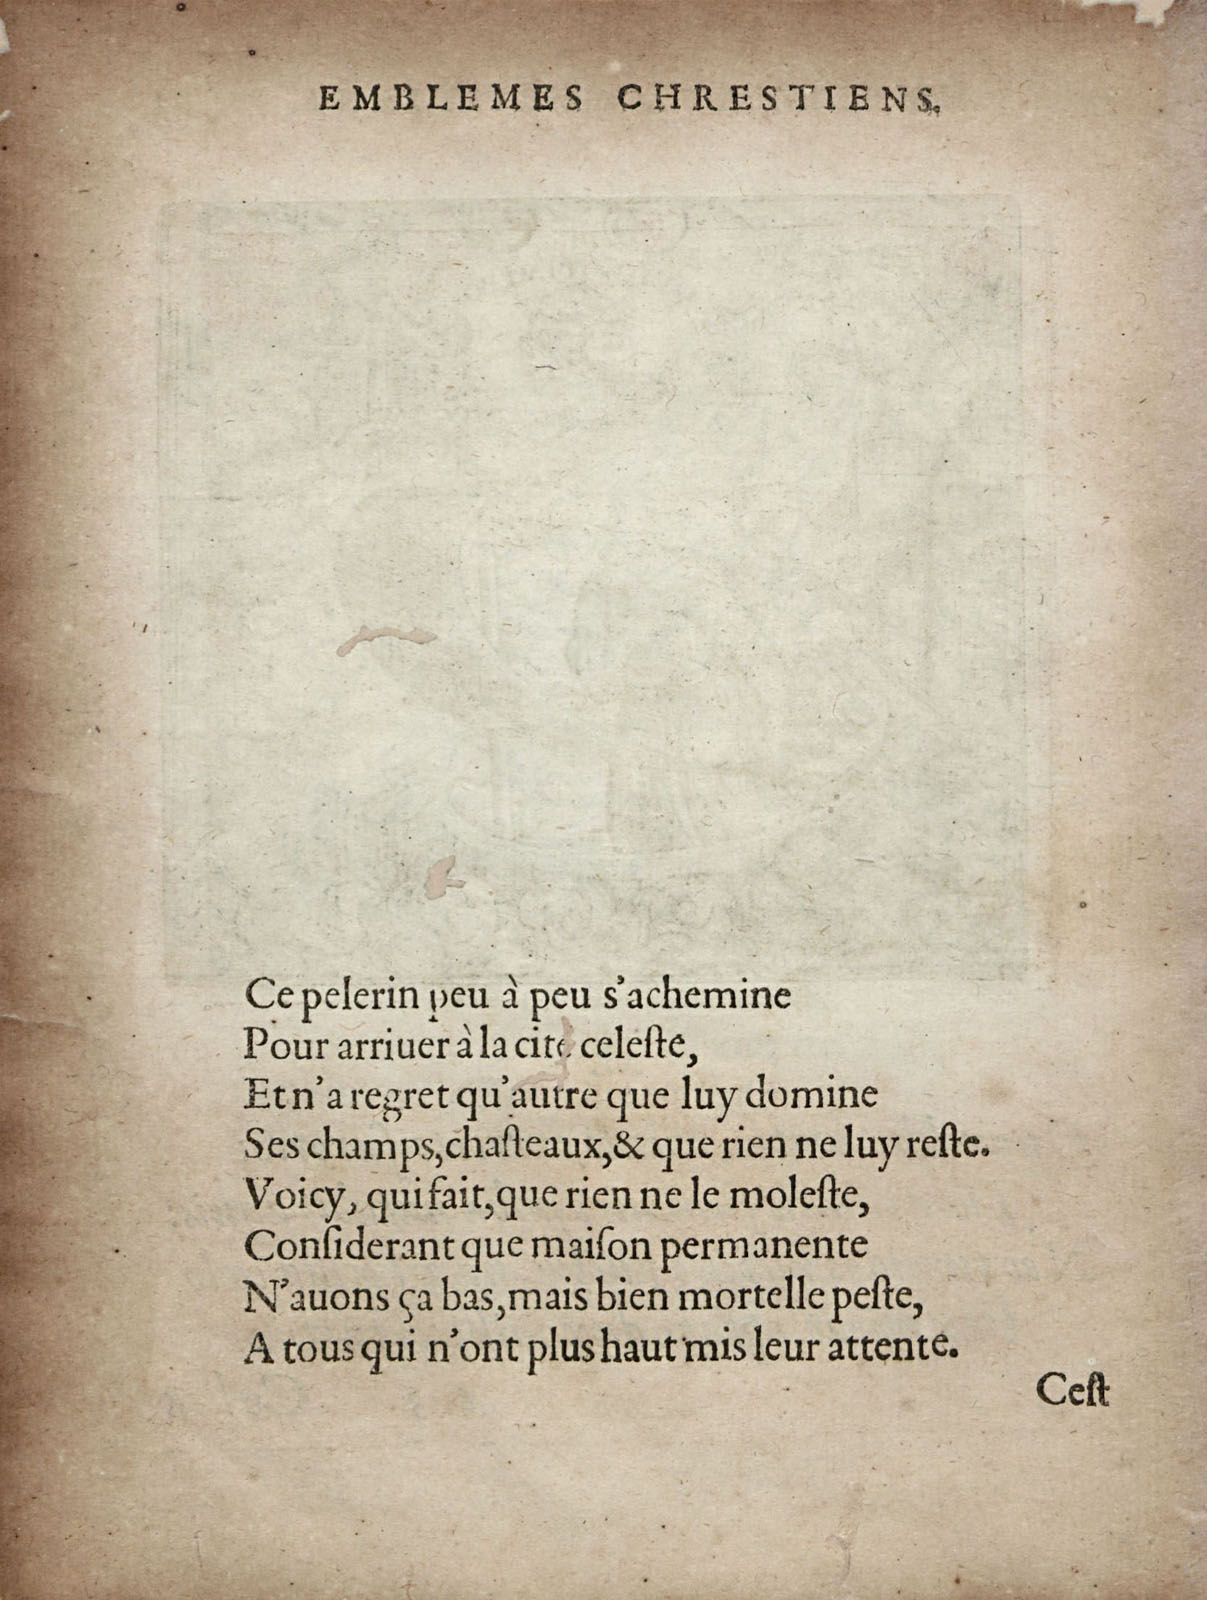 EMBLEMES CHRESTIENS.
Ce pelerin peu à peu s'achemine
Pour arriuer à la cité celeſte,
Et n'a regret qu'autre que luy domine
Ses champs, chaſteaux, & que rien ne luy reſte.
Voicy, qui fait, que rien ne le moleſte,
Conſiderant que maiſon permanente
N'auons ça bas, mais bien mortelle peſte,
A tous qui n'ont plus haut mis leur attente.
Ceſt